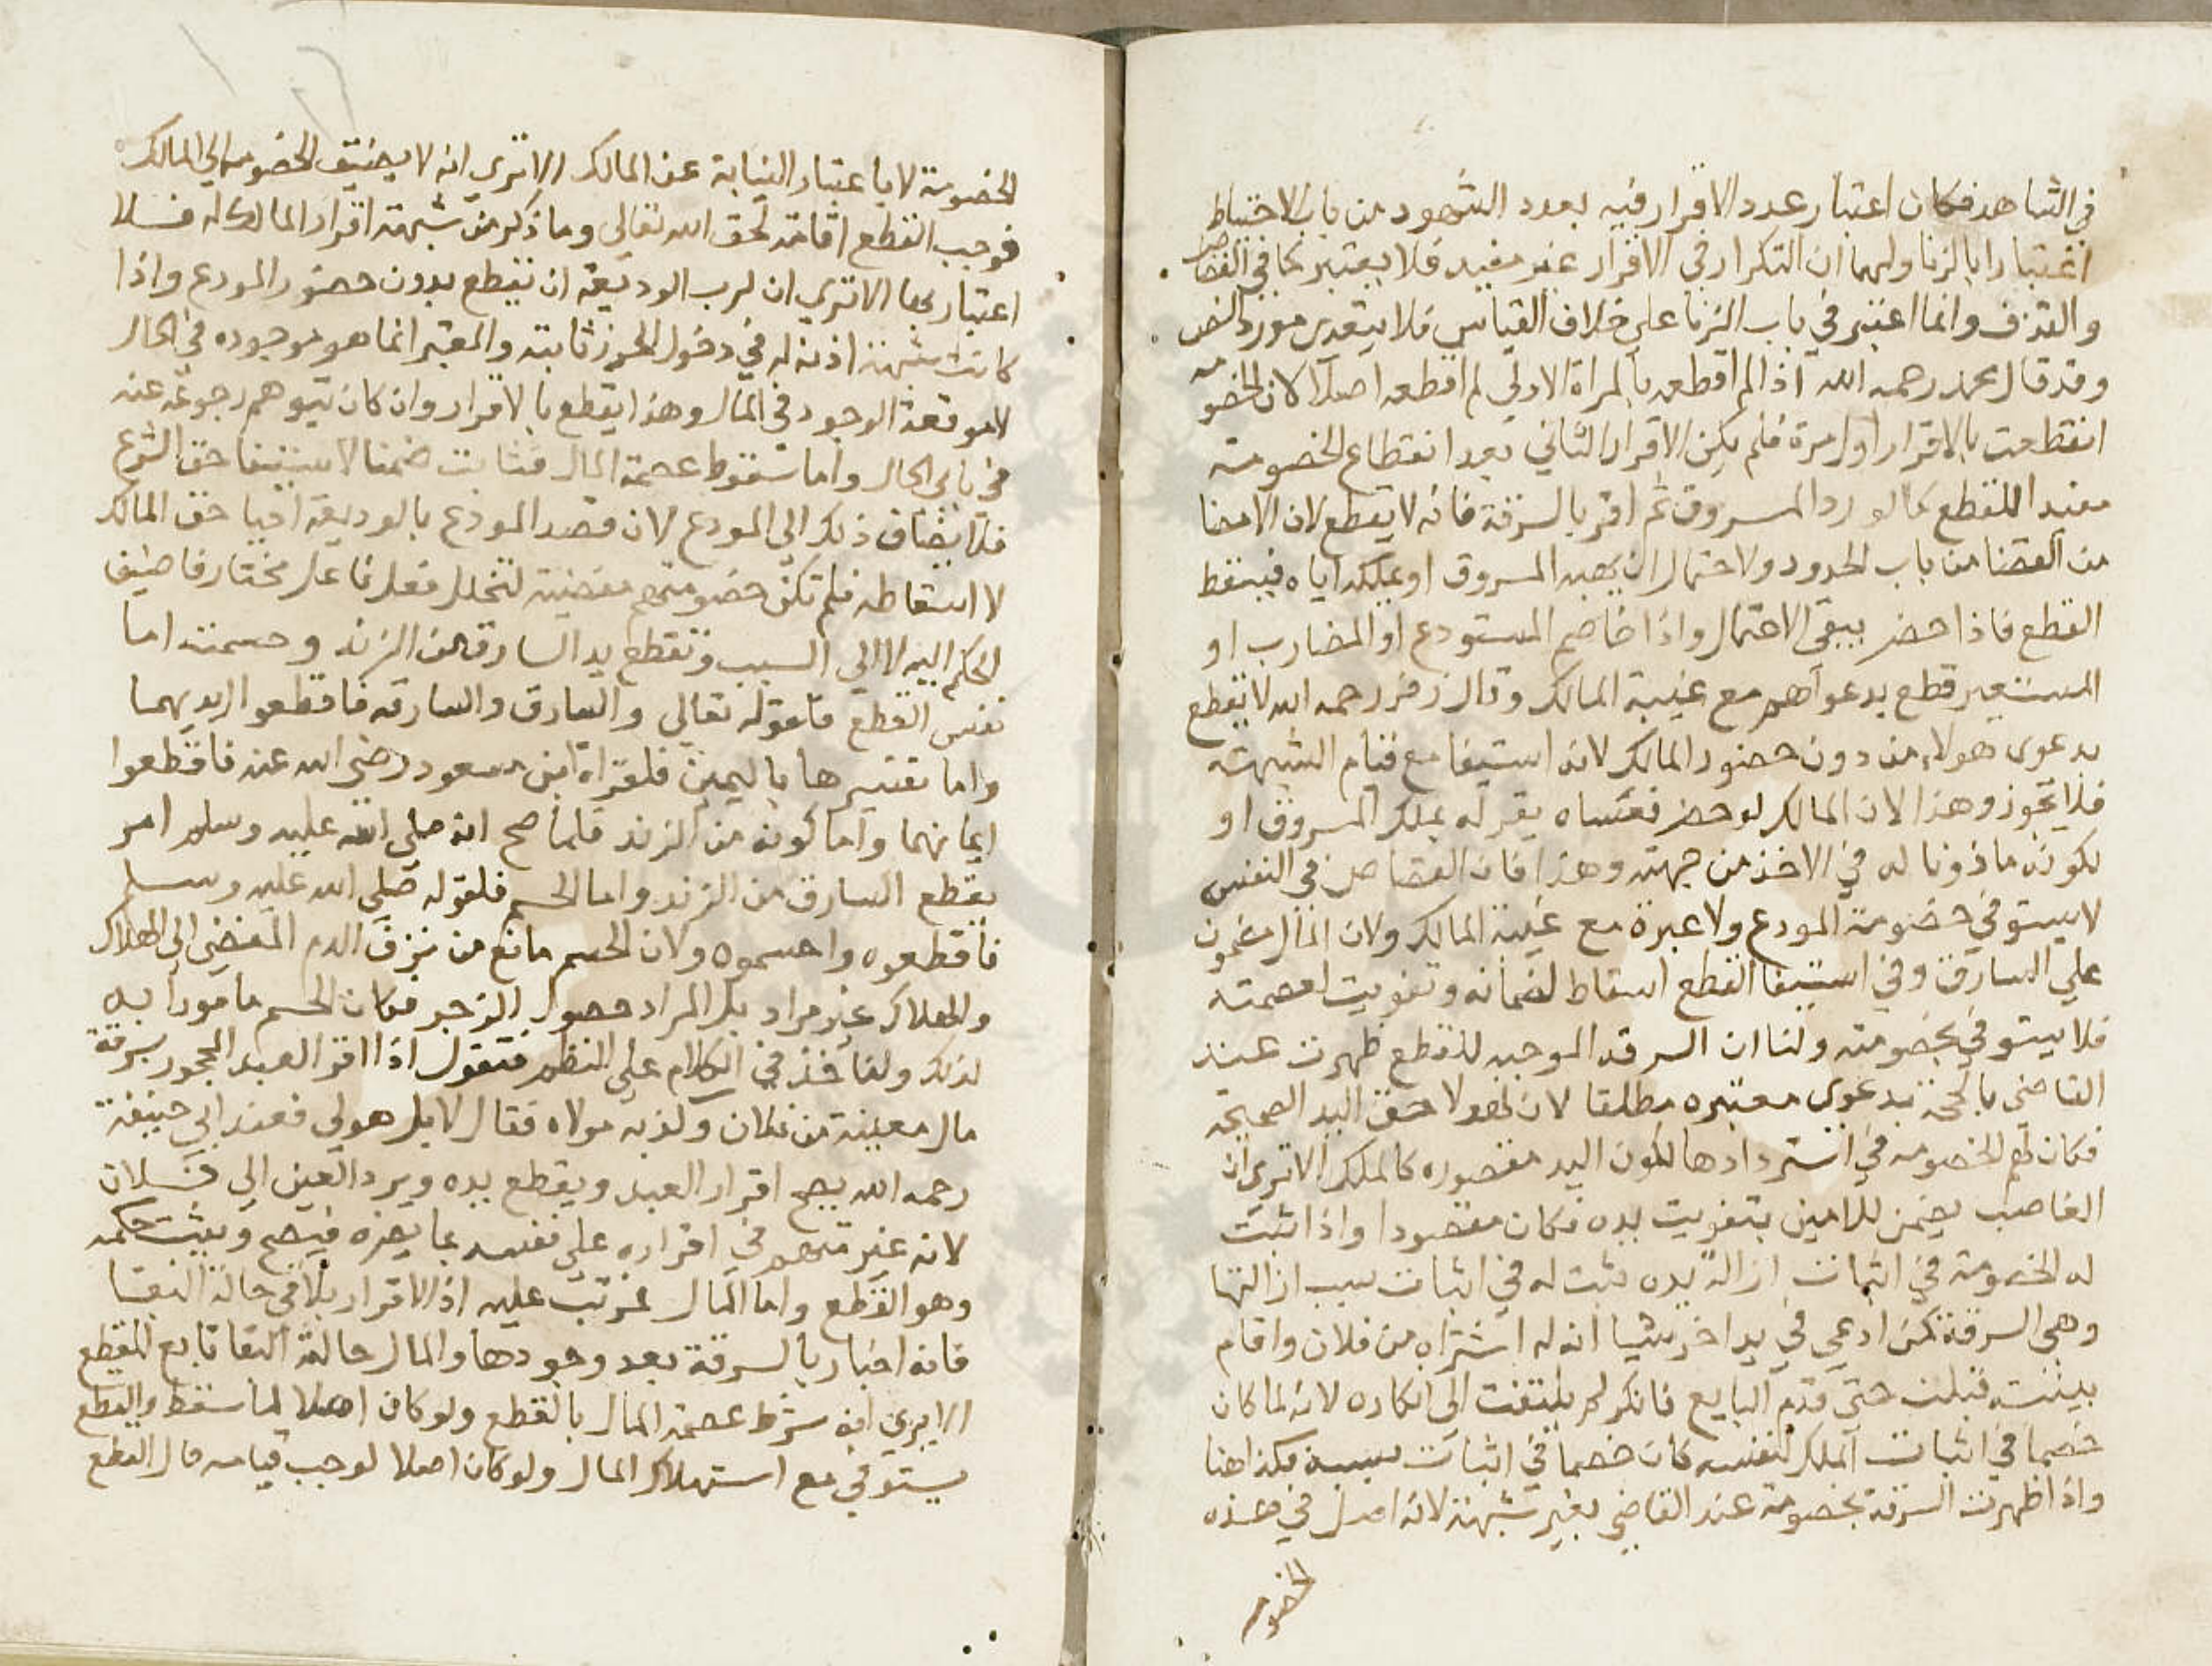 في الشاهد فكان اعتبار عدد الاقرار فيه بعدد الشهود من باب الاحتياط
اعتبارا بالزنا ولهما ان التكرار في الاقرار غير مفيد فلا يعتبر كما في القصاص
والقذف وانما اعتبر في باب الزنا على خلاف القياس فلا يتعدى مورد النص
وقد قال محمد رحمه الله اذا لم اقطعه بالمراة الاولى لم اقطعه اصلا لان الخصومه
انقطعت بالاقرار اول مرة فلم يكن الاقرار الثاني بعد انقطاع الخصومة
مفيدا للقطع كما لو رد المسروق ثم اقر بالسرقة فانه لا يقطع لان الامضا
من القضا من باب الحدود ولاحتمال ان يهبه المسروق او يملكه اياه فيسقط
القطع فاذا حضر يبقى الاحتمال واذا خاصم المستودع او المضارب او
المستعير قطع بدعواهم مع غيبة المالك وقال زفر رحمه الله لا يقطع
بدعوى هولاء من دون حضور المالك لانه استيفا مع قيام الشبهة
فلا تجوز وهذا لان المالك لو حضر فعساه يقر له بملك المسروق او
لكونه ماذونا له في الاخذ من جهته وهذا فان القصاص في النفس
لا يستوفى خضومة المودع ولا عبرة مع غيبة المالك ولان المال مضمون
على السارق وفي استيفا القطع اسقاط لضمانه وتفويت لعصمته
فلا يستوفى بخصومته ولنا ان السرقه الموجبه للقطع ظهرت عند
القاضي بالحجة بدعوى معتبره مطلقا لان لهولا حق اليد الصحيحه
فكان لهم الخصومه في استردادها لكون اليد مقصوره كالملك الا ترى ان
الغاصب يضمن للامين بتفويت يده فكان مقصودا واذا ثبت
له الخصومة في اثبات ازالة يده يثبت له في اثبات سبب ازالتها
وهي السرقة كمن ادعى في يد اخر شيا انه له اشتراه من فلان واقام
بينته قبلت حتى قدم البايع فانكر لم يلتفت الى انكاره لانه لما كان
خصما في اثبات الملك لنفسه كان خصما في اثبات سببه فكذا هنا
واذا ظهرت السرقة بخصومة عند القاضي بغير شبهة لانه اصل في هذه
الخصومه
الخصومة لا باعتبار النيابة عن المالك الا ترى انه لا يضيف الخصومه الى المالك
فوجب القطع اقامة لحق الله تعالى وما ذكر من شبهة اقرار المالك له فلا
اعتبار بها الا ترى ان لرب الوديعة ان يقطع بدون حضور المودع واذا
كانت شبهة اذنه له في دخول الحرز ثابته والمعتبر انما هو موجوده في الحال
لا موقعة الوجود في المال وهذا يقطع بالاقرار وان كان يتوهم رجوعه عنه
في باني الحال واما سقوط عصمة المال فثابت ضمنا لاستيفا حق الشرع
فلا يضاف ذلك الى المودع لان قصد المودع بالوديعة احيا حق المالك
لا اسقاطه فلم تكن خضومتهم مفضية لتخلل فعل فاعل مختار فاضيف
الحكم اليه لا الى السبب وتقطع يد السارق من الزند وحسمت اما
نفس القطع فلقوله تعالى والسارق والسارقه فاقطعوا ايديهما
واما تفسيرها باليمين فلقراة ابن مسعود رضي الله عنه فاقطعوا
ايمانهما واما كونه من الزند فلما صح انه صلى الله عليه وسلم امر
بقطع السارق من الزند واما الحسم فلقوله صلى الله عليه وسلم
فاقطعوه واحسموه ولان الحسم مانع من نزف الدم المفضي الى الهلاك
والهلاك غير مراد بل المراد حصول الزجر فكان الحسم مامورا به
لذلك ولناخذ في الكلام على النظم فتقول اذا اقر العبد المحجور بسرقة
مال معينة من فلان وكذبه مولاه فقال لا بل هو لي فعند ابي حنيفة
رحمه الله يصح اقرار العبد ويقطع يده ويرد العين الى فلان
لانه غير متهم في اقراره على نفسه بما يضره فيصح ويثبت حكمه
وهو القطع واما المال غرتب عليه اذ الاقرار يلاقي حالة البقا
فانه اخبار بالسرقة بعد وجودها والمال حالة البقا تابع للقطع
الا يرى انه شرط عصمة المال بالقطع ولو كان اصلا لما سقط والقطع
يستوفى مع استهلاك المال ولو كان اصلا لوجب قيامه حال القطع